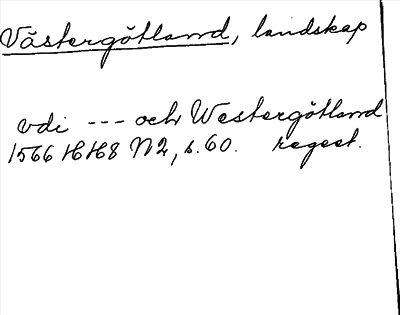 Västergötland, landskap
vdi --- och Westergötland
1566 HH8 N2, s. 60. regest.